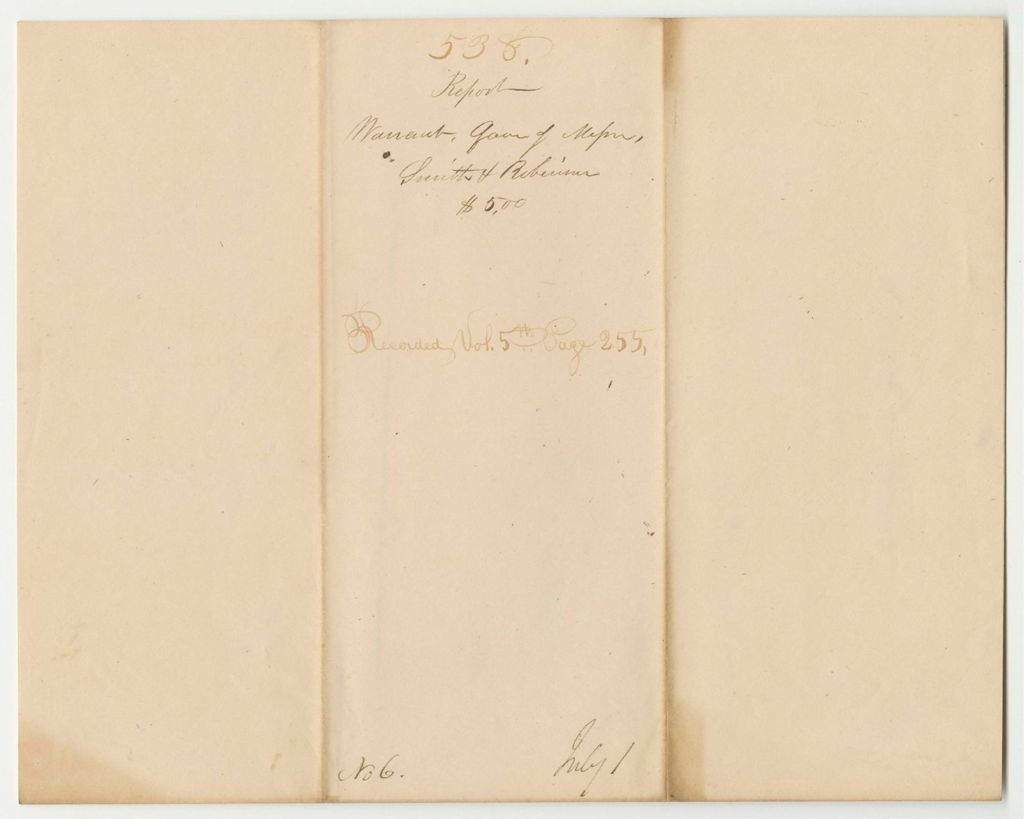 538.
Report
Warrant, favr of Messrs,
Smith & Robinson
$5,00
Recorded, Vol. 5th. Page 255,
No 6.
July 1